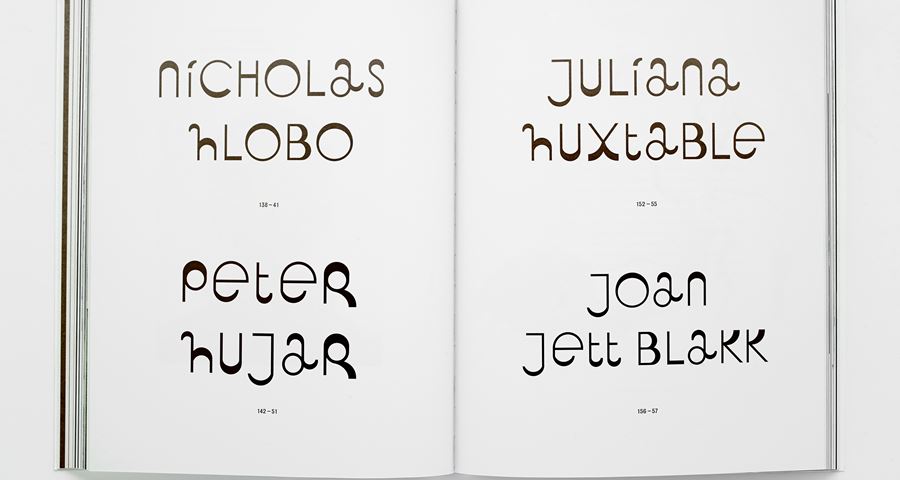 NiCHOLaS
hLOBO
138–41
PeteR
hUJaR
142–51
JULiana
hUXtaBLe
152–55
JOan
Jett BLaKK
156–57